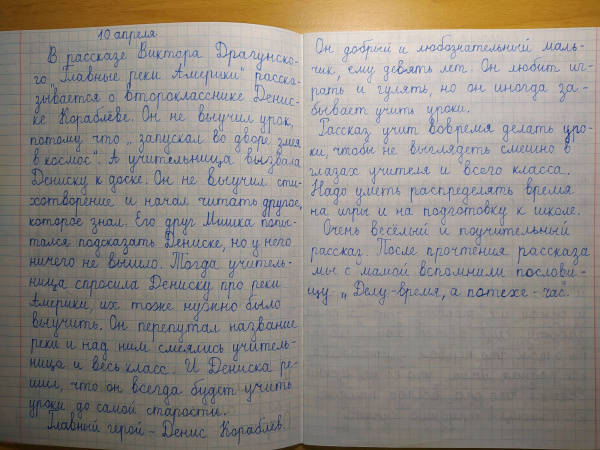 10 апреля
В рассказе Виктора Драгунско-
го „Главные реки Америки" расска-
зывается о второкласснике Денис-
ке Кораблёве. Он не выучил урок,
потому что „запускал во дворе змея
в космос". А учительница вызвала
Дениску к доске. Он не выучил сти-
хотворение и начал читать другое,
которое знал. Его друг Мишка попы-
тался подсказать Дениске, но у него
ничего не вышло. Тогда учитель-
ница спросила Дениску про реки
Америки, их тоже нужно было
выучить. Он перепутал название
реки и над ним смеялись учитель-
ница и весь класс. И Дениска ре-
шил, что он всегда будет учить
уроки до самой старости.
Главный герой - Денис Кораблёв.
Он добрый и любознательный маль-
чик, ему девять лет. Он любит иг-
рать и гулять, но он иногда за-
бывает учить уроки.
Рассказ учит вовремя делать уро-
ки, чтобы не выглядеть смешно в
глазах учителя и всего класса.
Надо уметь распределять время
на игры и на подготовку к школе.
Очень весёлый и поучительный
рассказ. После прочтения рассказа
мы с мамой вспомнили послови-
цу „Делу-время, а потехе-час".